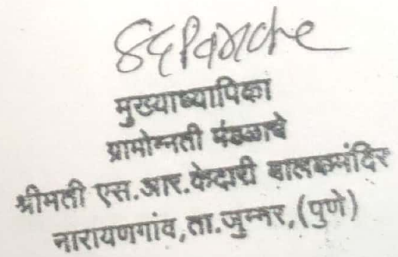 मुख्याध्यापिका
ग्रामोन्नती मंडळाचे
श्रीमती एस.आर.केदारी बालकमंदिर
नारायणगांव,ता.जुन्नर,(पुणे)